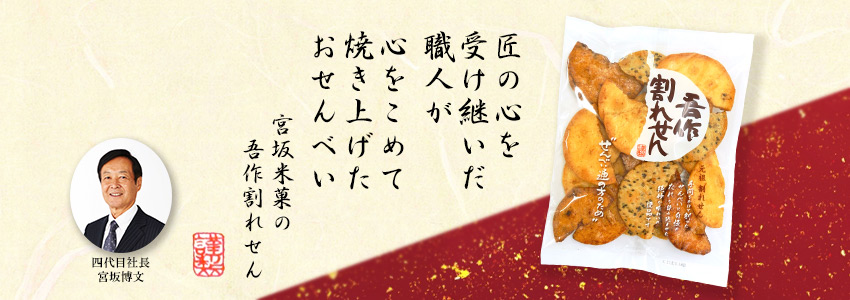 匠の心を
受け継いだ
職人が
心をこめて
焼き上げた
おせんべい
宮坂米菓の
吾作割れせん
四代目社長
宮坂博文
吾作
割れせん
元祖 割れせん